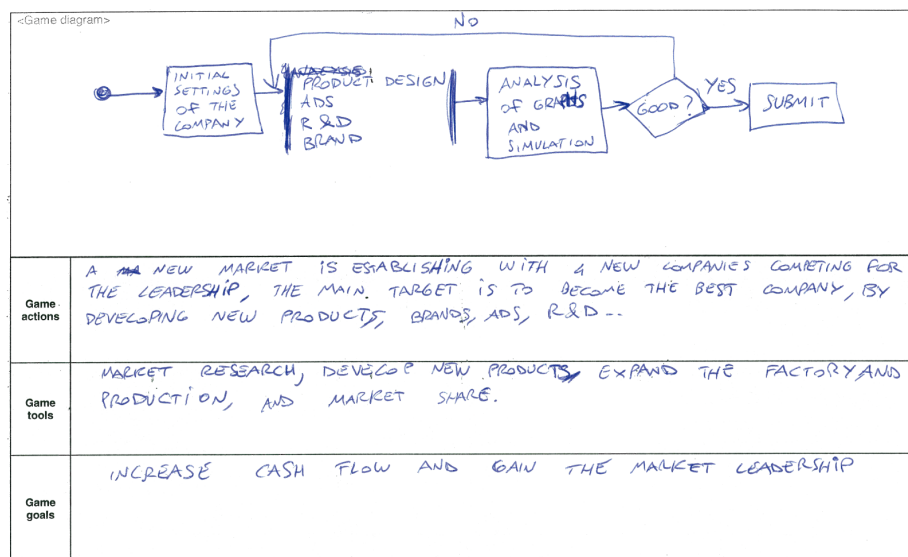 <Game diagram>
NO
INITIAL
SETTINGS
OF THE
COMPANY
PRODUCT DESIGN
ADS
R &D
BRAND
ANALYSIS
OF GRAPHS
AND
SIMULATION
GOOD?
YES
SUBMIT
Game actions
A NEW MARKET IS ESTABLISHING WITH 4 NEW COMPANIES COMPETING FOR
THE LEADERSHIP, THE MAIN TARGET IS TO BECOME THE BEST COMPANY, BY
DEVELOPING NEW PRODUCTS, BRANDS, ADS, R&D --
Game tools
MARKET RESEARCH, DEVELOP NEW PRODUCTS, EXPAND THE FACTORY AND
PRODUCTION, AND MARKET SHARE.
Game goals
INCREASE CASH FLOW AND GAIN THE MARKET LEADERSHIP